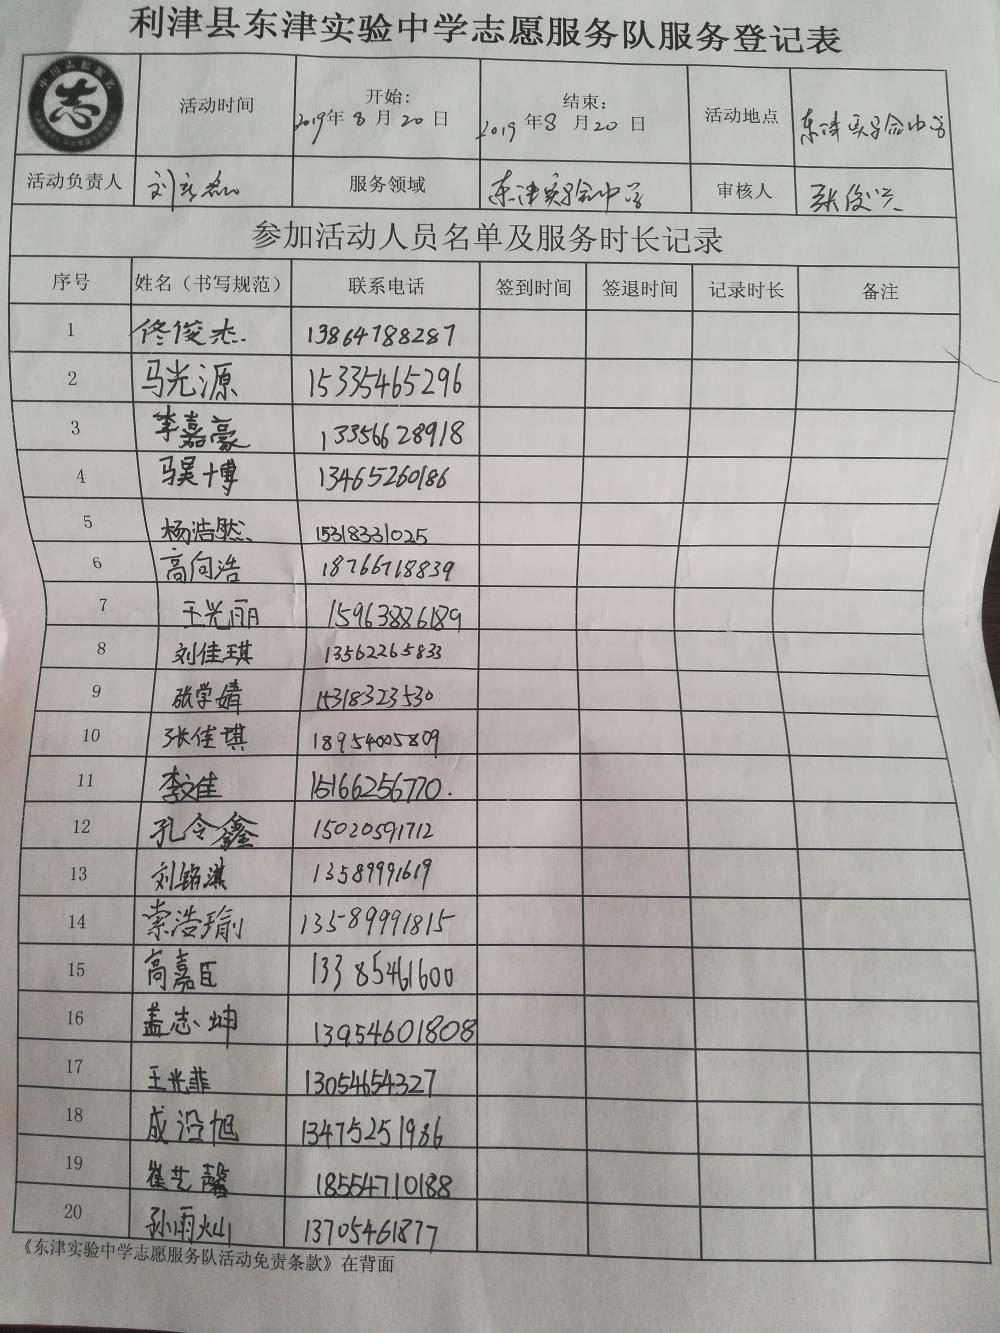 利津县东津实验中学志愿服务队服务登记表
志
活动时间 开始: 2019年8月20日 结束: 2019年8月20日 活动地点 东津实验中学
活动负责人 服务领域 东津实验中学 审核人 张俊兴
参加活动人员名单及服务时长记录
序号 姓名（书写规范） 联系电话 签到时间 签退时间 记录时长 备注
1 佟俊杰 13864788287
2 马光源 15335465296
3 李嘉豪 13356628918
4 13465260186
5 杨浩然 15318331025
6 高向浩 18766718839
7 王光丽 15963886189
8 刘佳琪 13562265833
9 张学婧 15318323530
10 张佳琪 18954005809
11 李文佳 15166256770
12 孔令鑫 15020591712
13 刘铭淇 13589991619
14 索浩瑜 13589991815
15 高嘉臣 13385461600
16 盖志坤 13954601808
17 王光菲 13054654327
18 13475251986
19 崔艺馨 18554710188
20 孙雨灿 13705461877
《东津实验中学志愿服务队活动免责条款》在背面